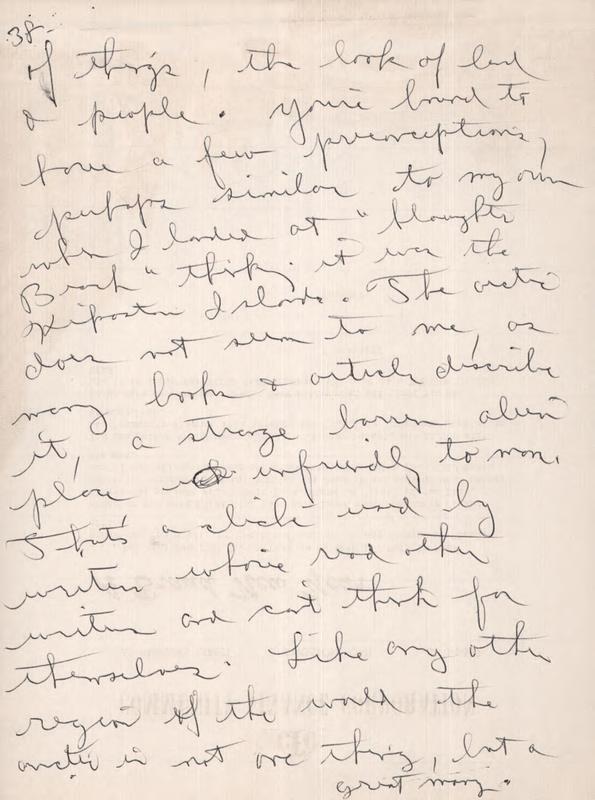 38-
of things, the look of land
& people. You're bound to
have a few preconceptions,
perhaps similar to my own
when I landed at "
Beach" thinking it was the
Islands. The arctic
does not seem to me, as
many books & articles describe
it, a strange barren alien
place unfriendly to man.
That's a cliché used by
writers who've read other
writers and can't think for
themselves. Like any other
region of the world the
arctic is not one thing, but a
great many.